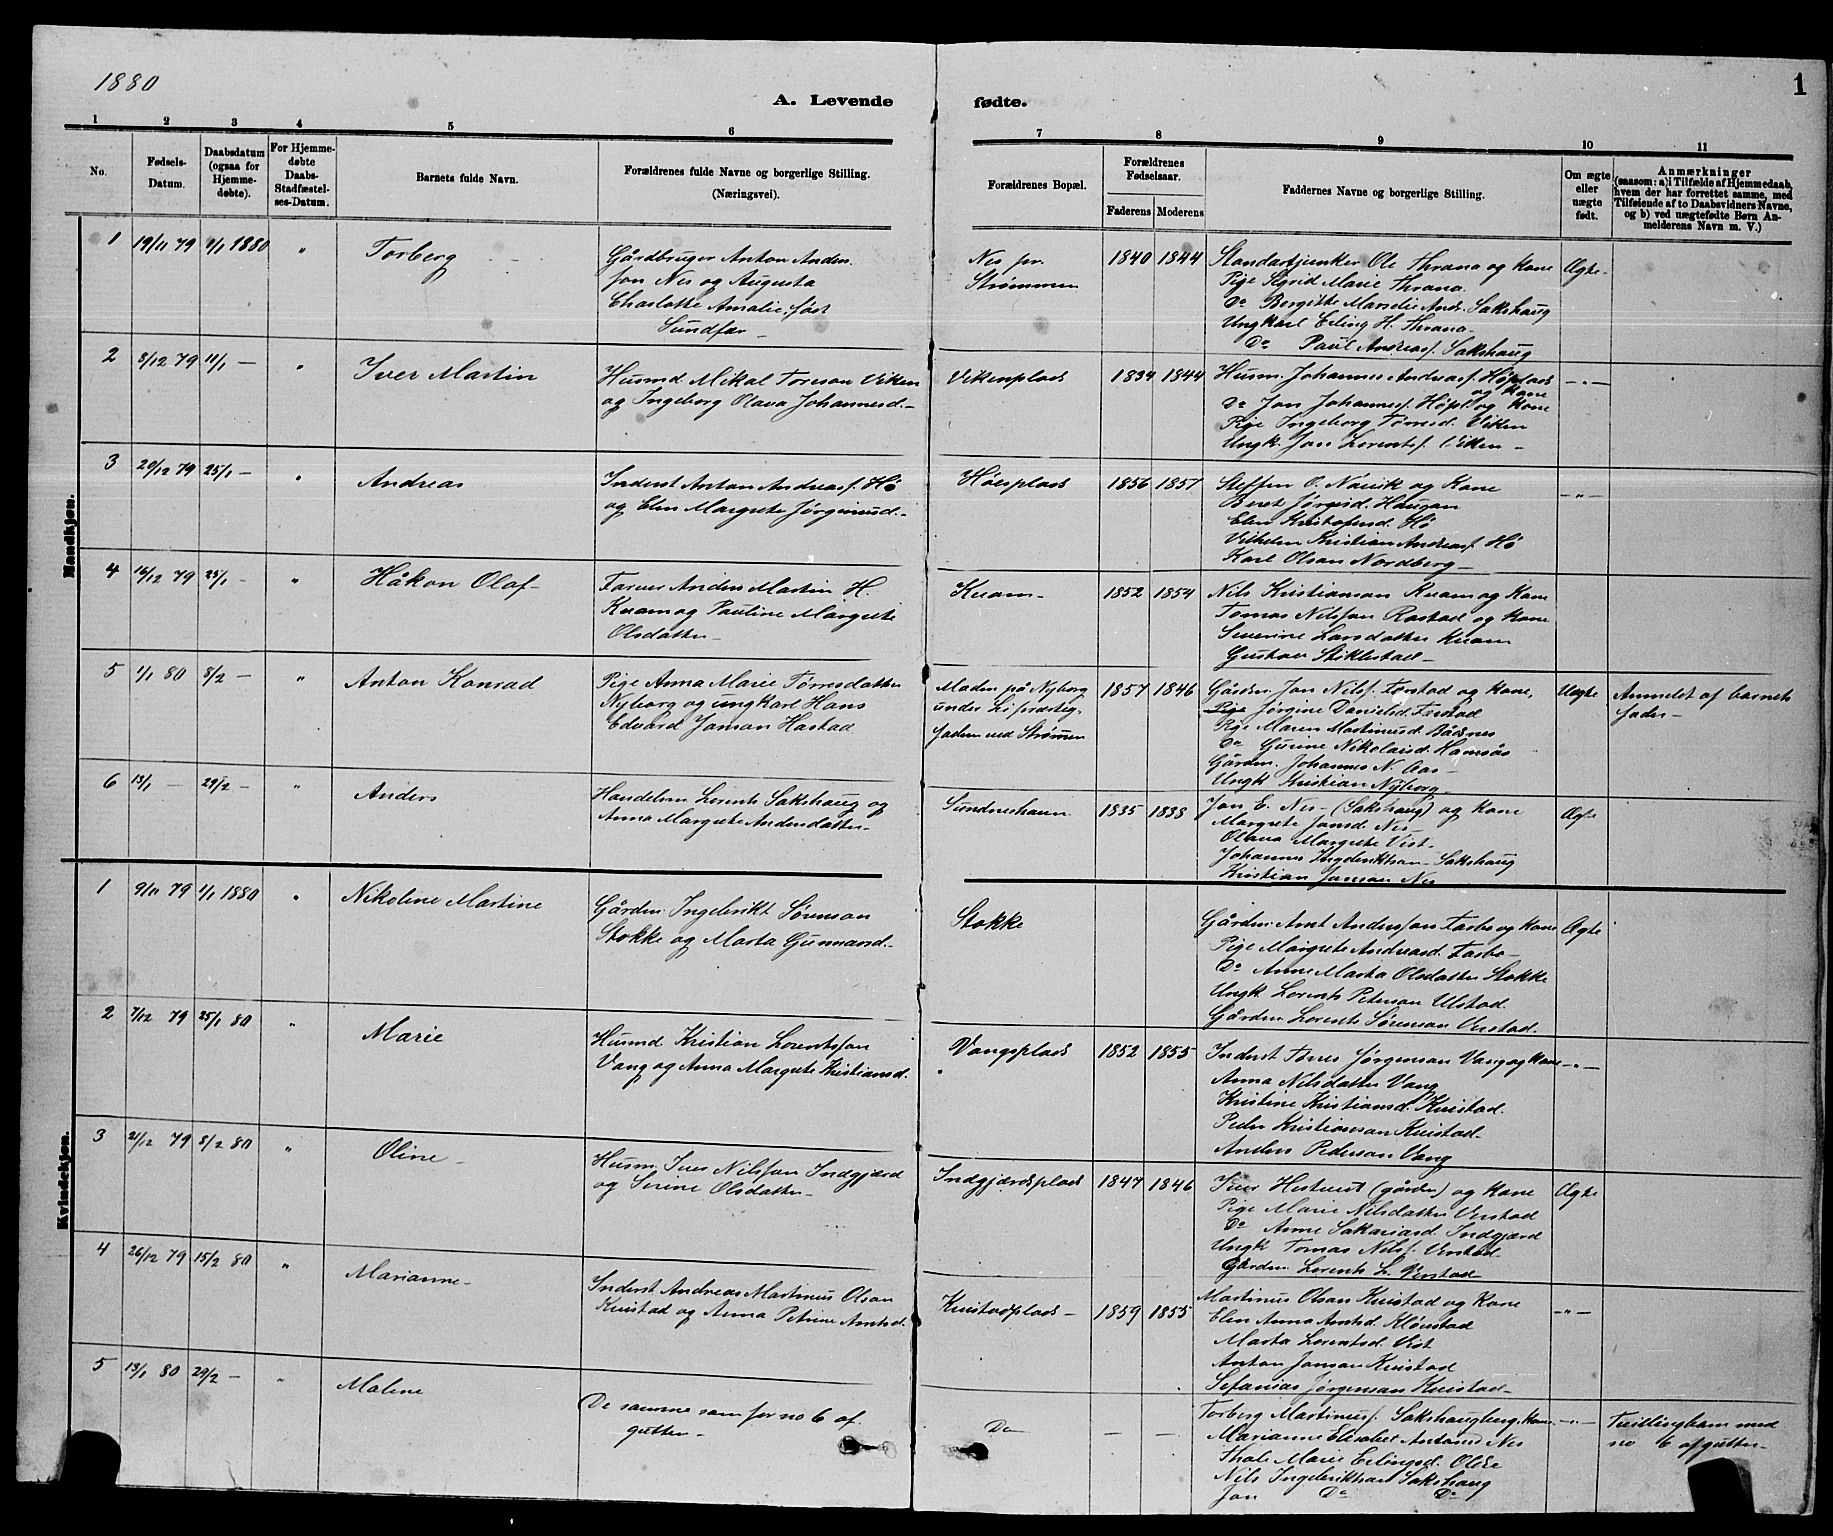 1880
1
A. Levende fødte.
1 2 3 4 5 6 7 8 9 10 11
No.
Fødsels-
Datum.
Daabsdatum
(ogsaa for
Hjemme-
døbte).
For Hjemme-
døbte
Daabs-
Stadfæstel-
ses-Datum.
Barnets fulde Navn.
Forældrenes fulde Navne og borgerlige Stilling.
(Næringsvei).
Forældrenes Bopæl.
Forældrenes
Fødselsaar.
Faderens Moderens
Faddernes Navne og borgerlige Stilling.
Om ægte
eller
uægte
født.
Anmærkninger
(saasom: a) i Tilfælde af Hjemmedaab,
hvem der har forrettet samme, med
Tilføiende af to Daabsvidners Navne,
og b) ved uægtefødte Børn An-
melderens Navn m. V.)
Mandkjøn.
1 19/11 79 1/1 1880 " Torberg
Gårdbruger Anton Anders
son Nes og Augusta
Charlotte Amalie, født
Sundfær
Nes pr.
Strømmen
1840 1844
Standartjunker Ole Thrana og Kone
Pige Sigrid Marie Thrana
Do Bergitte Marselie Andr. Sakshaug
Ungkarl Erling H. Thrana
Do Paul Andreasf. Sakshaug
Ægte
2 8/12 79 11/1 — " Iver Martin
Husmd Mikal Toreson Viken
og Ingeborg Olava Johannesd.
Vikenplads
1834 1844
Husm. Johannes Andreasf. Høplads
og Kone
Do Jon Johannesf. Høpl. og Kone
Pige Ingeborg Tørresd. Viken
Ungk. Jon Lorentsf. Viken
— " —
3 20/12 79 25/1 — " Andreas
Inderst Anton Andreasf. Hø
og Elen Margrete Jørginusd.
Høesplads
1856 1857
Steffen O. Navik og Kone
Beret Jørgisd. Haugan
Elen Kristofersd. Hø
Vilhelm Kristian Andreasf. Hø
Karl Olsan Nordberg
— " —
4 16/12 79 25/1 — " Håkon Olaf
Farver Anders Martin H.
Kvam og Pauline Margrete
Olsdatter
Kvam
1852 1854
Nils Kristiansan Kvam og Kone
Tomas Nilsson Rostad og Kone
Severine Larsdatter Kvam
Gustav Stiklestad
5 1/1 80 8/2 — " Anton Konrad
Pige Anna Marie Tørresdatter
Nyborg og ungkarl Hans
Edvard Jansan Hastad
Moderen på Nyborg
under Li præsteg.
faderen ved Strømmen
1857 1846
Gårdm. Jon Nilsf. Forstad og Kone,
Pige Jørgine Danielsd. Forstad
Pige Maren Martinusd. Bådsnes
Do Gurine Nikolaisd. Hamsås
Gårdm. Johannes N. Aas
Ungk Kristian Nyborg
Uægte
Anmeldt af barnets
fader
6 13/1 — 29/2 — " Anders
Handelsm Lorents Sakshaug og
Anna Margrete Andersdatter
Sundneshavn
1835 1838
Jon E. Nes (Sakshaug) og Kone
Margrete Jonsd. Nes
Olava Margrete Vist
Johannes Ingebrikthsan Sakshaug
Kristian Jansan Nes
Ægte
Kvindekjøn.
1 9/11 79 1/1 1880 " Nikoline Martine
Gårdm. Ingebrikt Sørensan
Stokke og Marta Gunnarsd.
Stokke
Gårdm Arnt Andersson Tasbo og Kone
Pige Margrete Andreasd. Tasbo
Do Anne Marta Olsdatter Stokke
Ungk Lorents Petersan Ulstad
Gårdm Lorents Sørensan Verstad.
Ægte
2 7/12 79 25/1 80 " Marie
Husmd Kristian Lorentsson
Vang og Anna Margrete Kristiansd.
Vangsplads
1852 1855
Inderst Tores Jørgensan Vang og Kone
Anna Nilsdatter Vang
Kristine Kristiansd. Kvistad.
Peder Kristiansan Kvistad
Anders Pedersan Vang
— " —
3 21/12 79 8/2 80 " Oline
Husm. Iver Nilsson Indgjærd
og Serine Olsdatter
Indgjærdsplads
1847 1846
Iver Hestveit (gårdm) og Kone
Pige Marie Nilsdatter Verstad
Do Anne Sakariasd. Indgjærd
Ungk Tomas Nilsf. Verstad.
Gårdm. Lorents L. Verstad
Ægte
4 26/12 79 15/2 80 " Marianne
Inderst Andreas Martinus Olsan
Kvistad og Anna Petrine Arntsd.
Kvistadplads
1859 1855
Martinus Olsan Kvistad og Kone
Elen Anna Arntsd. Kløvstad
Marta Lorentsd. Vist
Anton Jansan Kvistad
Sefanias Jørgensan Kvistad
— " —
5 13/1 80 29/2 — " Malene
De samme som for no 6 af
gutter
Do
— —
Torberg Martinusf. Sakshaugberg, Kone
Marianne Elisabet Antonsd Nes
Thale Marie Erlingsd. Olde
Nils Ingebrikthsan Sakshaug
Jon Do Do
— " —
Tvillingbarn med
no 6 af gutter